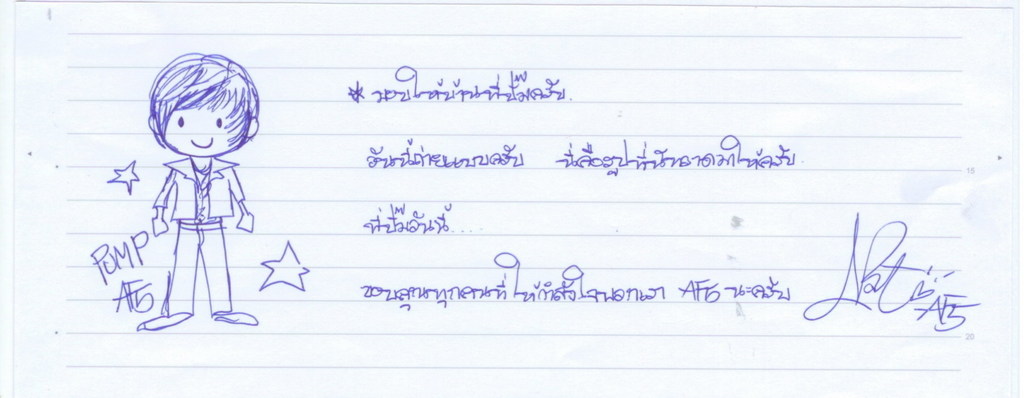 * มอบให้บ้านพี่ปั๊มครับ.
วันนี้ถ่ายแบบครับ นี่คือรูปที่นัทวาดมาให้ครับ
พี่ปั๊มวันนี้....
ขอบคุณทุกคนที่ให้กำลังใจพวกเรา AF5 นะครับ
PUMP
AF5
AF5
15
20